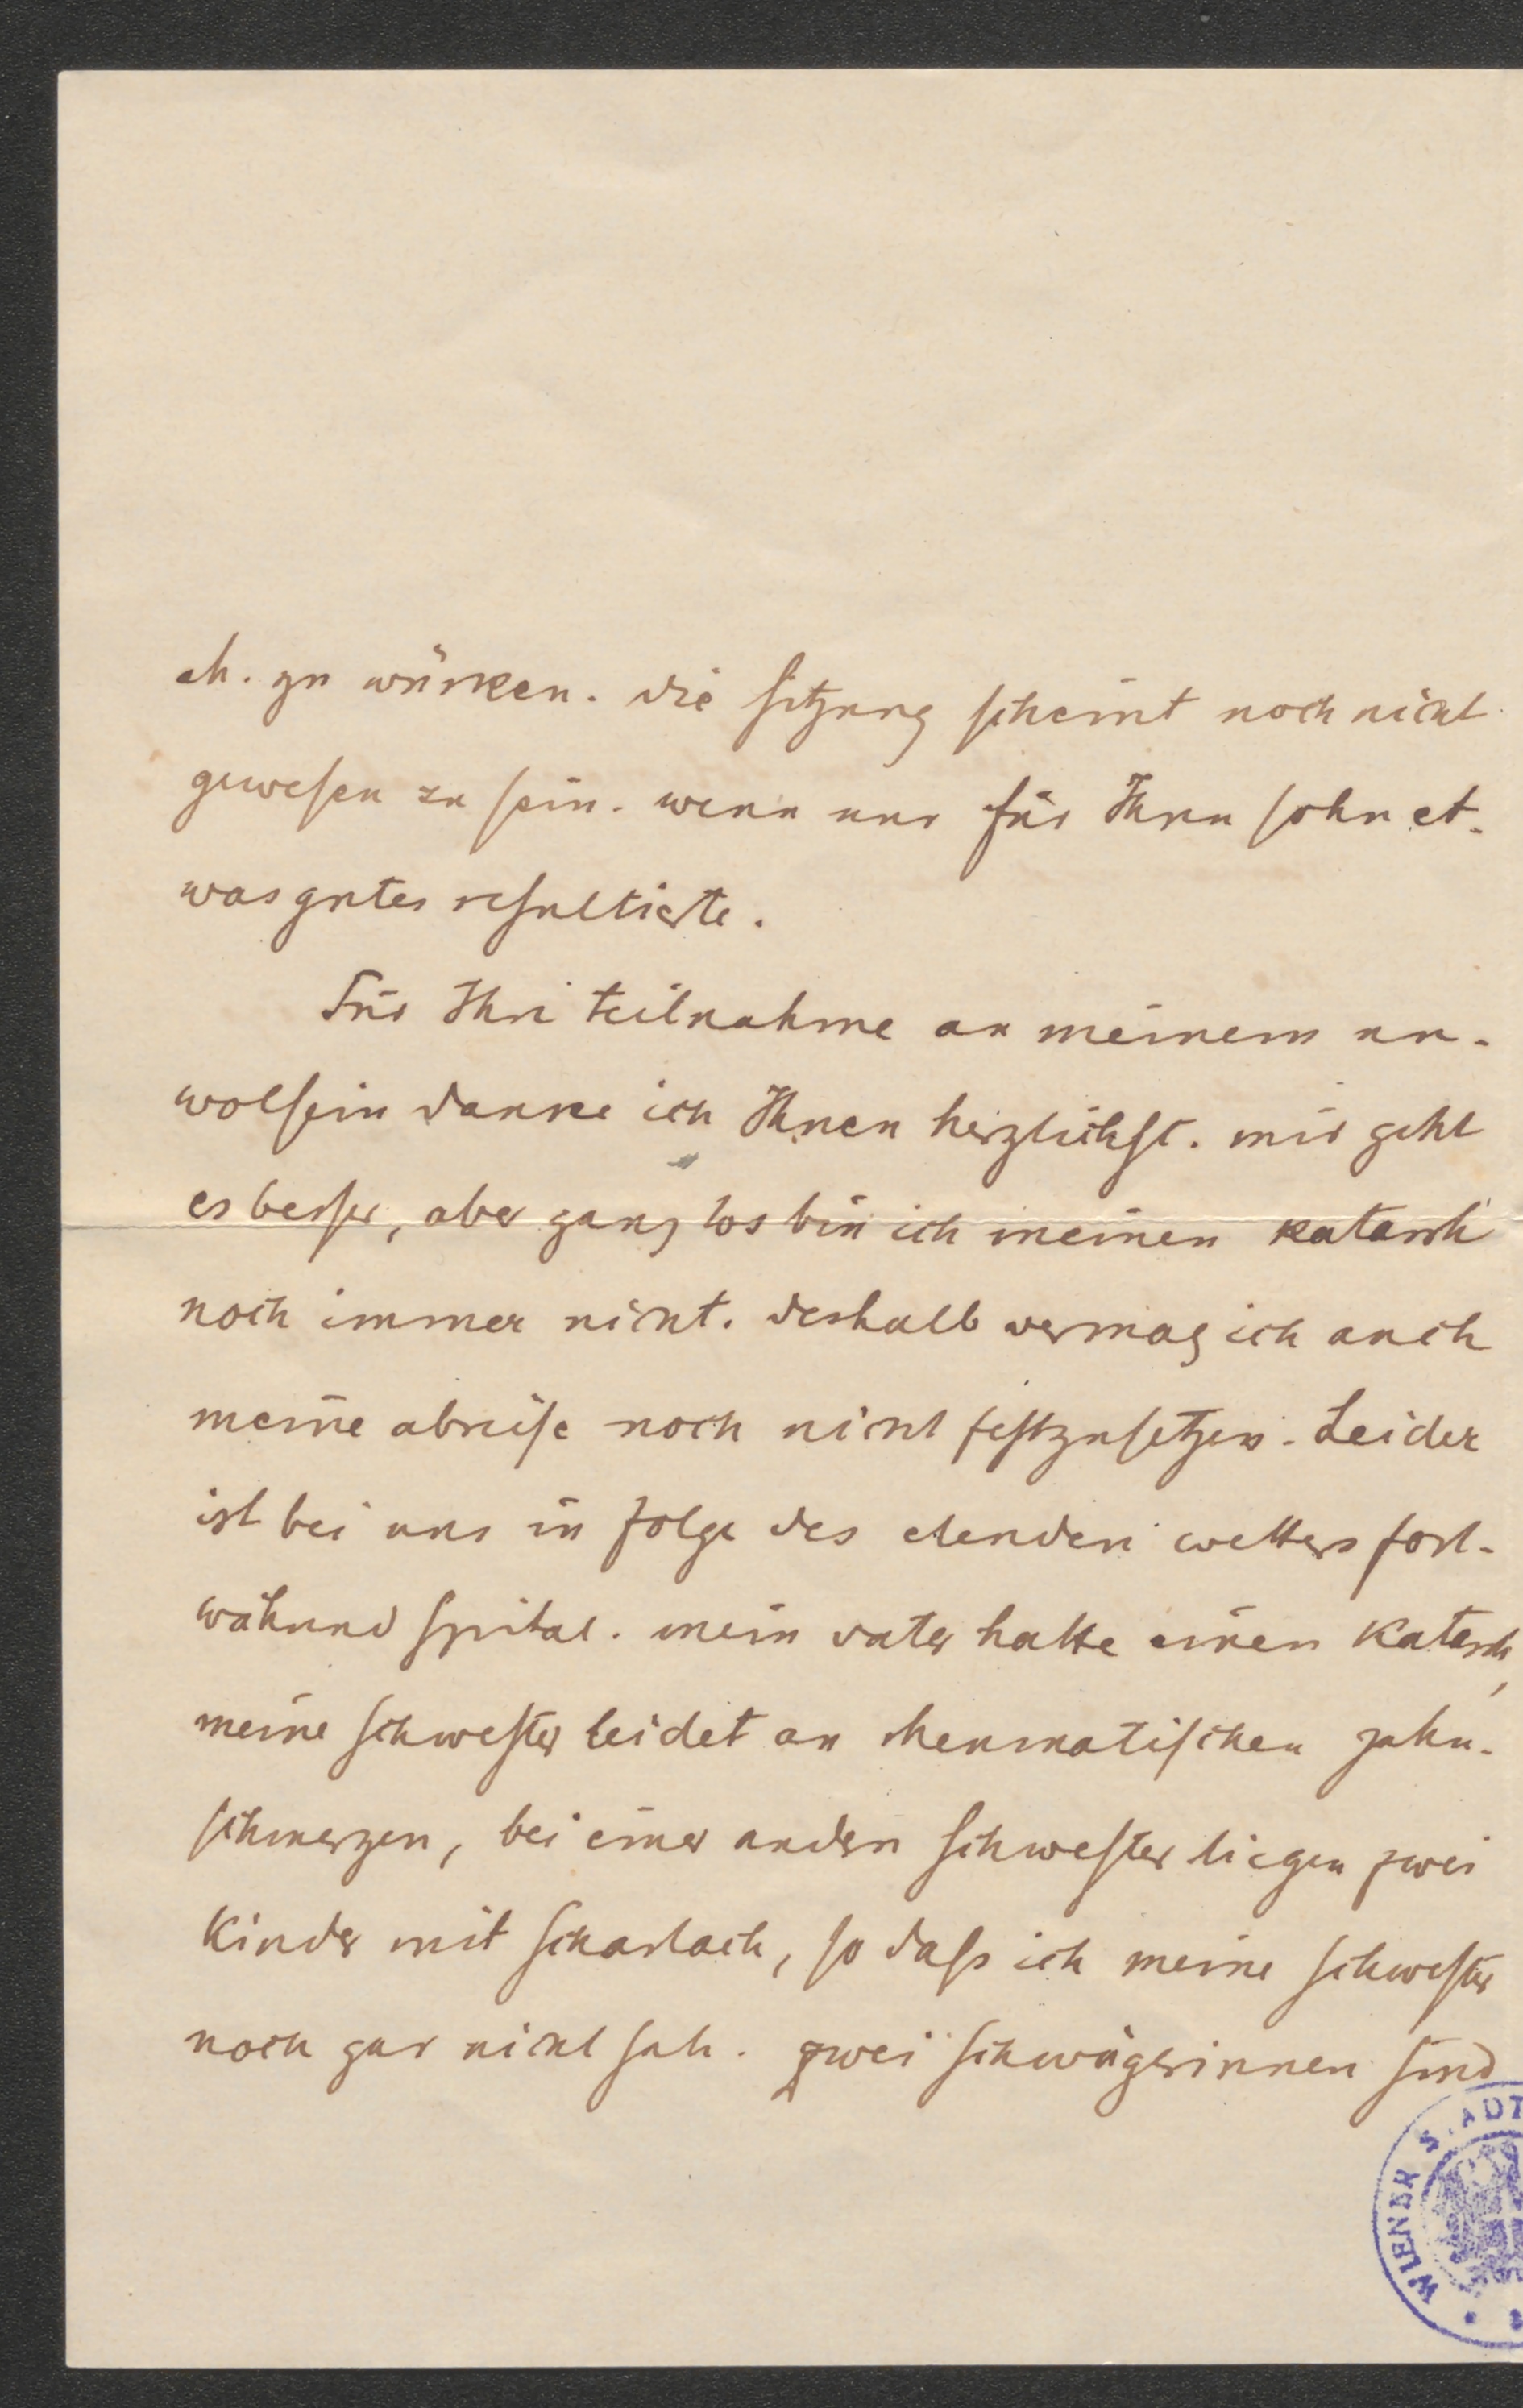 eh. zu würken. die sitzung scheint noch nicht
gewesen zu sein. wenn nur für Ihren sohn et-
was gutes resultierte.
Für Ihre teilnahme an meinem un-
wolsein danke ich Ihnen herzlichst. mir geht
es besser, aber ganz los bin ich meinen katarrh
noch immer nicht. deshalb vermag ich auch
meine abreise noch nicht festzusetzen. Leider
ist bei uns in folge des elenden wetters fort-
während spital. mein vater hatte einen Katarrh,
meine schwester leidet an rheumatischen zahn-
schmerzen, bei einer andern schwester liegen zwei
Kinder mit scharlach, so daß ich meine schwester
noch gar nicht sah. zwei schwägerinnen sind
WIENER STADT